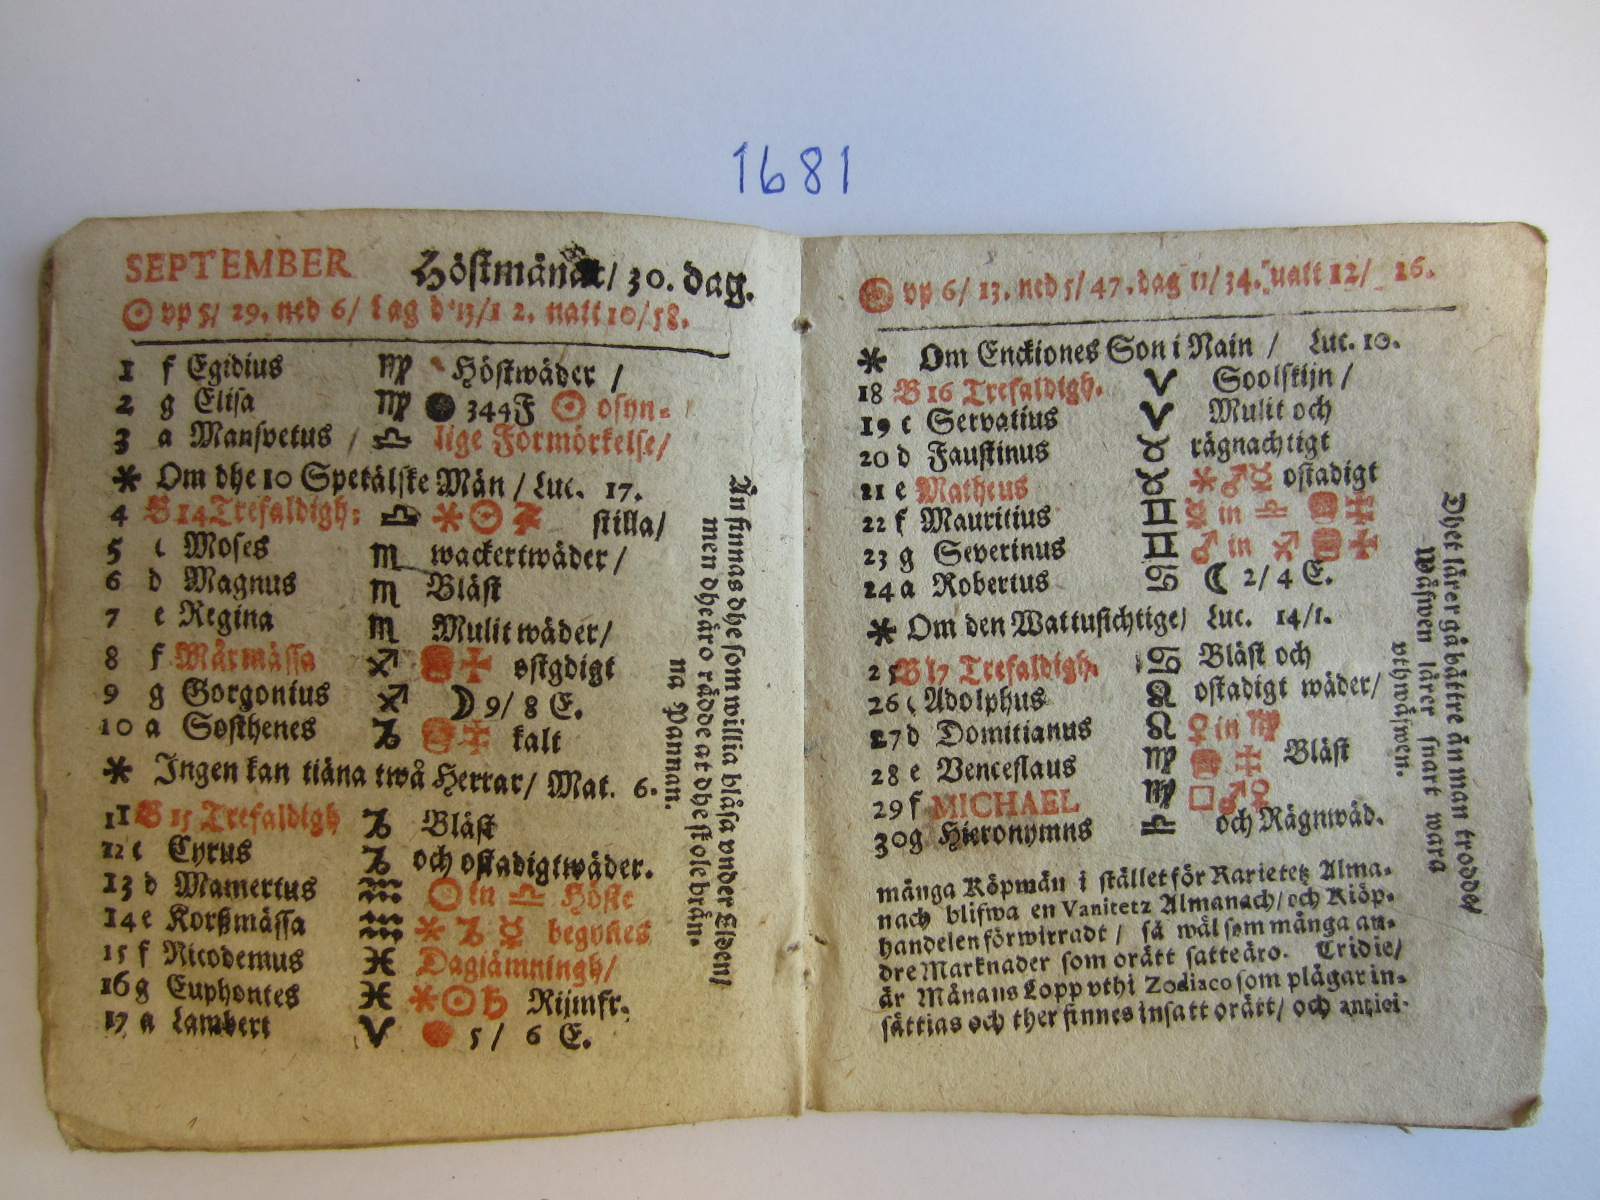 1681
SEPTEMBER Höstmånat/ 30. dag.
☉ vp 5/ 29. ned 6/ dag 13/1 2. natt 10/58.
1 f Egidius ♍ Höstwäder /
2 g Elisa ♍ ● 344F ☉ osyn-
3 a Mansvetus / ♎ lige Förmörkelse/
* Om dhe 10 Spetälske Män / Luc. 17.
4 B 14 Trefaldigh: ♎ * ☉ stilla/
5 c Moses ♏ wackertwäder /
6 d Magnus ♏ Bläst
7 e Regina ♏ Mulit wäder/
8 f Mårmässa ♐ ostgdigt
9 g Gorgonius ♐ ☽ 9/ 8 E.
10 a Sosthenes ♑ kalt
* Ingen kan tiäna twå Herrar/ Mat. 6.
11 B 15 Trefaldigh ♑ Bläst
12 c Cyrus ♑ och ostadigtwäder.
13 d Mamertus ♒ ☉ in ♎ Höste
14 e Korßmässa ♒ * ♑ ☿ begynes
15 f Nicodemus ♓ Dagjämningh/
16 g Euphontes ♓ * ☉ ♄ Rijmfr.
17 a Lambert ♈ ● 5 / 6 E.
Än finnas dhe som willia blåsa vnder Elden/
men dhe äro rädde at dhe skole brän-
na Pannan.
☉ vp 6/ 13. ned 5/ 47. dag 11/ 34. natt 12/ 26.
* Om Enckiones Son i Nain / Luc. 10.
18 B 16 Trefaldigh. ♈ Soolskijn /
19 c Servatius ♈ Mulit och
20 d Faustinus ♉ rägnachtigt
21 e Matheus ♉ * ♂ ☿ ostadigt
22 f Mauritius ♊ ☿ in ♎
23 g Severinus ♊ ♂ in ♐
24 a Robertus ♋ ☾ 2/ 4 E.
* Om den Wattusichtige/ Luc. 14/1.
25 B 17 Trefaldigh. ♋ Bläst och
26 c Adolphus ♌ ostadigt wäder/
27 d Domitianus ♌ ♀ in ♍
28 e Venceslaus ♍ Bläst
29 f MICHAEL ♍ □ ♂ ♀
30 g Hieronymns ♎ och Rägnwäd.
Dhet lärer gå bättre än man trodde/
Wäfwen lärer snart wara
vthwäfwen.
många Köpmän i stället för Rarietetz Alma-
nach blifwa en Vanitetz Almanach/ och Kiöp-
handelen förwirradt / så wäl som många an-
dre Marknader som orätt satte äro. Tridie/
är Månans Lopp vthi Zodiaco som plågar in-
sättias och ther finnes insatt orätt/ och antici-